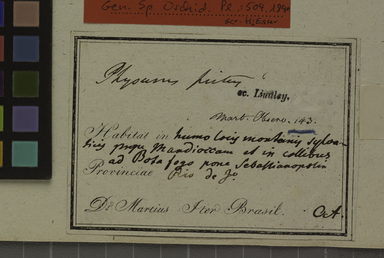 Gen. Sp. Orchid. Pl. 504. 1840
Physurus pictus
ec. Lindley.
Mart. Observ. 143.
Habitat in humo locis montanis sylva-
ticis prope Mandioccam et in collibus
ad Bota fogo pone Sebastianopolin
Provinciae Rio de J.
Dr. Martius Iter Brasil. Oct.